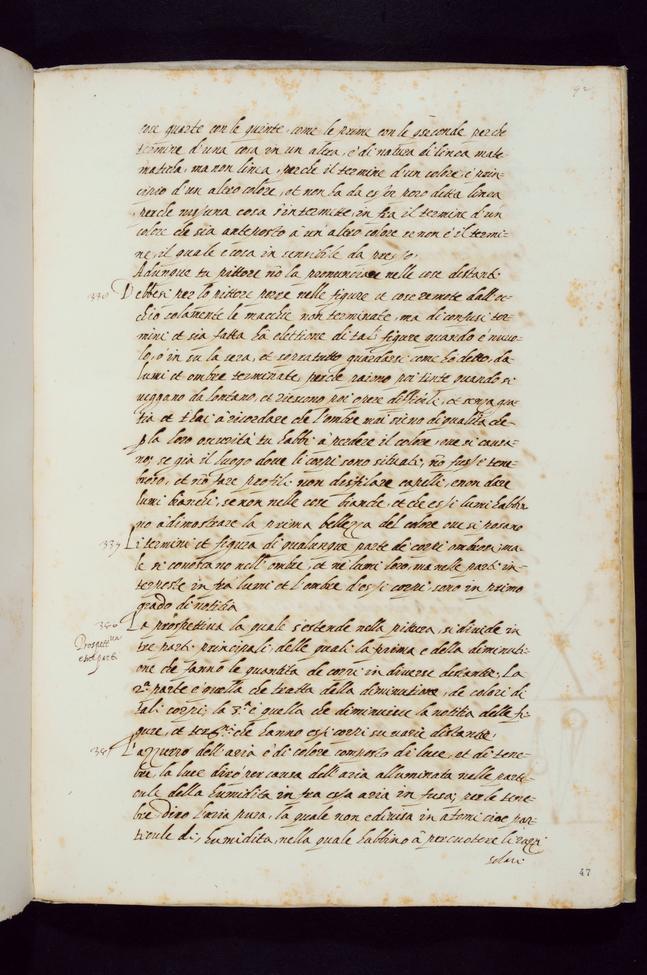 92
cose quarte con le quinte, come le prime con le seconde perche
termine d'una cosa in un altra, e di natura di linea mate-
matica, ma non linea, perche il termine d'un colore e prin-
cipio d'un altro colore, et non ha da esser pero detta linea
perche nessuna cosa s'intermette, in fra il termine d'un
colore che sia anteposto a un altro colore se non e il termi-
ne, il quale e cosa in sensibile da presso,
Adunque tu pittore nõ la pronunciare nelle cose distanti.
336 Debbesi per lo pittore porre nelle figure et cose remote dall'oc-
chio solamente le macchie non terminate, ma di confusi ter-
mini et sia fatta la elettione di tali figure quando e nuvo-
lo, o in su la sera, et sopra tutto guardarsi come ho detto, da
lumi et ombre terminate, perche paiono poi tinte quando si
veggano da lontano, et riescono poi opere difficili, et senza gra-
tia et t'hai a ricordare che l'ombre mai sieno di qualita che
p la loro oscurita tu habbi a perdere il colore, ove si causa-
no, se gia il luogo dove li corpi sono situati, nõ fussi tene-
broso, et nõ fare profili non disfilare capelli, e non dare
lumi bianchi, se non nelle cose bianche, et che essi lumi habbin-
no a dimostrare la prima bellezza del colore ove si posano
337 Li termini et figura di qualunque parte de corpi ombrosi, ma-
le si conoscano nell'ombre, et ne lumi loro, ma nelle parti in-
terposte in fra lumi et l'ombre d'essi corpi, sono in primo
grado di notitia
340 La prospettiva la quale s'estende nella pittura, si divide in
Prospettiva
tre parti principali, delle quali la prima e della diminuti-
one che fanno le quantita de corpi in diverse distantie, La
2ª parte e quella che tratta della diminutione, de colori di
tali corpi, la 3ª e quella che diminuisce la notitia delle fi-
gure, et termini che hanno essi corpi su varie distantie,
341 L'azzurro dell'aria e di colore composto di luce, et di tene-
bre, la luce dico per causa dell'aria alluminata nelle parti-
cule della humidita in fra essa aria in fusa; per le tene-
bre dico l'aria pura, la quale non e divisa in atomi cioe par-
ticule di, humidita, nella quale habbino a percuotere li razzi
solari
47